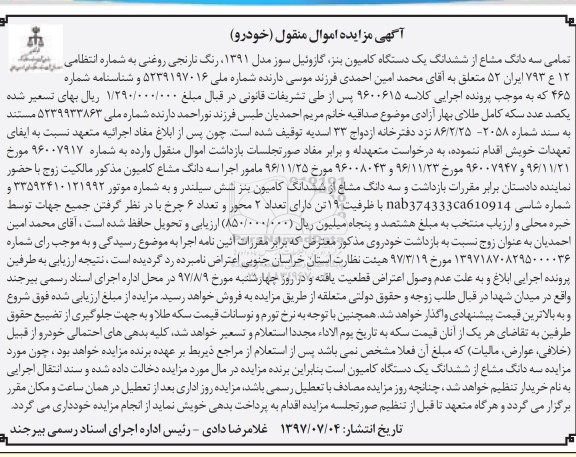 آگهی مزایده اموال منقول (خودرو)
تمامی سه دانگ مشاع از ششدانگ یک دستگاه کامیون بنز، گازوئیل سوز مدل ۱۳۹۱، رنگ نارنجی روغنی به شماره انتظامی
۱۲ ع ۷۹۳ ایران ۵۲ متعلق به آقای محمد امین احمدی فرزند موسی دارنده شماره ملی ۵۲۳۹۱۹۷۰۱۶ و شناسنامه شماره
۴۶۵ که به موجب پرونده اجرایی کلاسه ۹۶۰۰۶۱۵ پس از طی تشریفات قانونی در قبال مبلغ ۱/۲۹۰/۰۰۰/۰۰۰ ریال بهای تسعیر شده
یکصد عدد سکه کامل طلای بهار آزادی موضوع صداقیه خانم مریم احمدیان طبس فرزند نوراحمد دارنده شماره ملی ۵۲۳۹۹۳۳۸۶۳ مستند
به سند شماره ۲۰۵۸- ۸۶/۲/۲۵ نزد دفترخانه ازدواج ۳۳ اسدیه توقیف شده است. چون پس از ابلاغ مفاد اجرائیه متعهد نسبت به ایفای
تعهدات خویش اقدام ننموده، به درخواست متعهدله و برابر مفاد صورتجلسات بازداشت اموال منقول وارده به شماره ۹۶۰۰۷۹۱۷ مورخ
۹۶/۱۱/۲۱ و ۹۶۰۰۷۹۴۷ مورخ ۹۶/۱۱/۲۳ و ۹۶۰۰۸۰۴۳ مورخ ۹۶/۱۱/۲۵ مامور اجرا سه دانگ مشاع کامیون مذکور مالکیت زوج با حضور
نماینده دادستان برابر مقررات بازداشت و سه دانگ مشاع از ششدانگ کامیون بنز شش سیلندر و به شماره موتور ۳۳۵۹۲۴۱۰۱۲۱۹۹۲ و
شماره شاسی nab374333ca610914 با ظرفیت ۱۹ تن دارای تعداد ۲ محور و تعداد ۶ چرخ با در نظر گرفتن جمیع جهات توسط
خبره محلی و ارزیاب منتخب به مبلغ هشتصد و پنجاه میلیون ریال (۸۵۰/۰۰۰/۰۰۰) ارزیابی و تحویل حافظ شده است ، آقای محمد امین
احمدیان به عنوان زوج نسبت به بازداشت خودروی مذکور معترض که برابر مقررات آئین نامه اجرا به موضوع رسیدگی و به موجب رای شماره
۱۳۹۷۱۸۷۰۸۲۹۵۰۰۰۰۳۶ مورخ ۹۷/۳/۱۹ هیئت نظارت استان خراسان جنوبی اعتراض نامبرده رد گردیده است ، نتیجه ارزیابی به طرفین
پرونده اجرایی ابلاغ و به علت عدم وصول اعتراض قطعیت یافته و در روز چهارشنبه مورخ ۹۷/۸/۹ در محل اداره اجرای اسناد رسمی بیرجند
واقع در میدان شهدا در قبال طلب زوجه و حقوق دولتی متعلقه از طریق مزایده به فروش خواهد رسید. مزایده از مبلغ ارزیابی شده فوق شروع
و به بالاترین قیمت پیشنهادی واگذار خواهد شد. همچنین با توجه به نرخ تورم و نوسانات قیمت سکه طلا و به جهت جلوگیری از تضییع حقوق
طرفین به تقاضای هر یک از آنان قیمت سکه به تاریخ یوم الاداء مجددا استعلام و تسعیر خواهد شد، کلیه بدهی های احتمالی خودرو از قبیل
(خلافی، عوارض، مالیات) که مبلغ آن فعلا مشخص نمی باشد پس از استعلام از مراجع ذیربط بر عهده برنده مزایده خواهد بود ، چون مورد
مزایده سه دانگ مشاع از ششدانگ یک دستگاه کامیون است بنابراین برنده مزایده در مال مورد مزایده دخالت داده شده و سند انتقال اجرایی
به نام خریدار تنظیم خواهد شد ، چنانچه روز مزایده مصادف با تعطیل رسمی باشد، مزایده روز اداری بعد از تعطیل در همان ساعت و مکان مقرر
برگزار می گردد و هرگاه متعهد تا قبل از تنظیم صورتجلسه مزایده اقدام به پرداخت بدهی خویش نماید از انجام مزایده خودداری می گردد.
تاریخ انتشار: ۱۳۹۷/۰۷/۰۴ غلامرضا دادی - رئیس اداره اجرای اسناد رسمی بیرجند